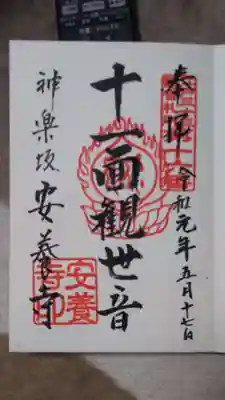 奉拝
令和元年五月十七日
十一面観世音
神楽坂 安養寺
安養
寺印